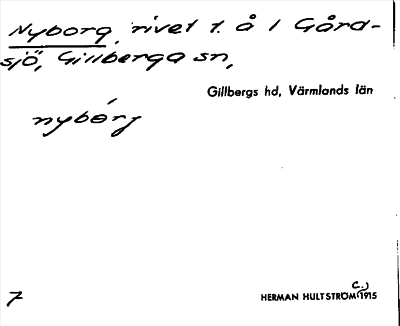 Nyborg, rivet t. å 1 Gård-
sjö, Gillberga sn,
Gillbergs hd, Värmlands län
nybórg
7
HERMAN HULTSTRÖM C.) 1915